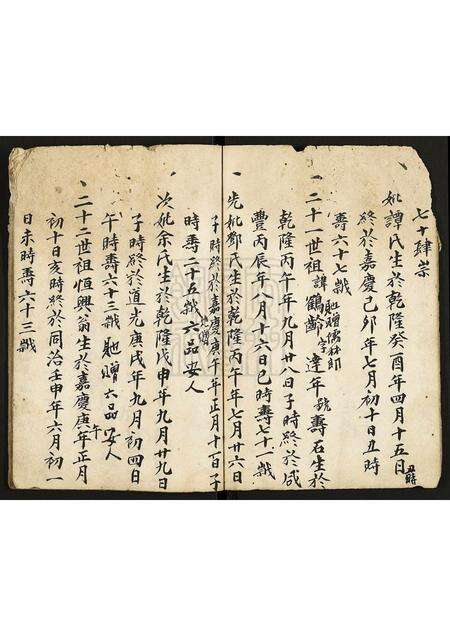 七十肆崇
妣譚氏生於乾隆癸酉年四月十五日丑時
終於嘉慶己卯年七月初十日丑時
壽六十七歲
二十一世祖諱鶴齡貤贈儒林郎字達年號壽石生於
乾隆丙午年九月廿八日子時終於咸
豐丙辰年八月十六日巳時壽七十一歲
先妣鄧氏生於乾隆丙午年七月廿六日
子時終於嘉慶庚午年正月十一日子
時壽二十五歲貤贈六品安人
次妣余氏生於乾隆戊申年九月廿九日
子時終於道光庚戌年九月初四日
午時壽六十三歲貤贈六品安人
二十二世祖恒興翁生於嘉慶庚午年正月
初十日亥時終於同治壬申年六月初一
日未時壽六十三歲